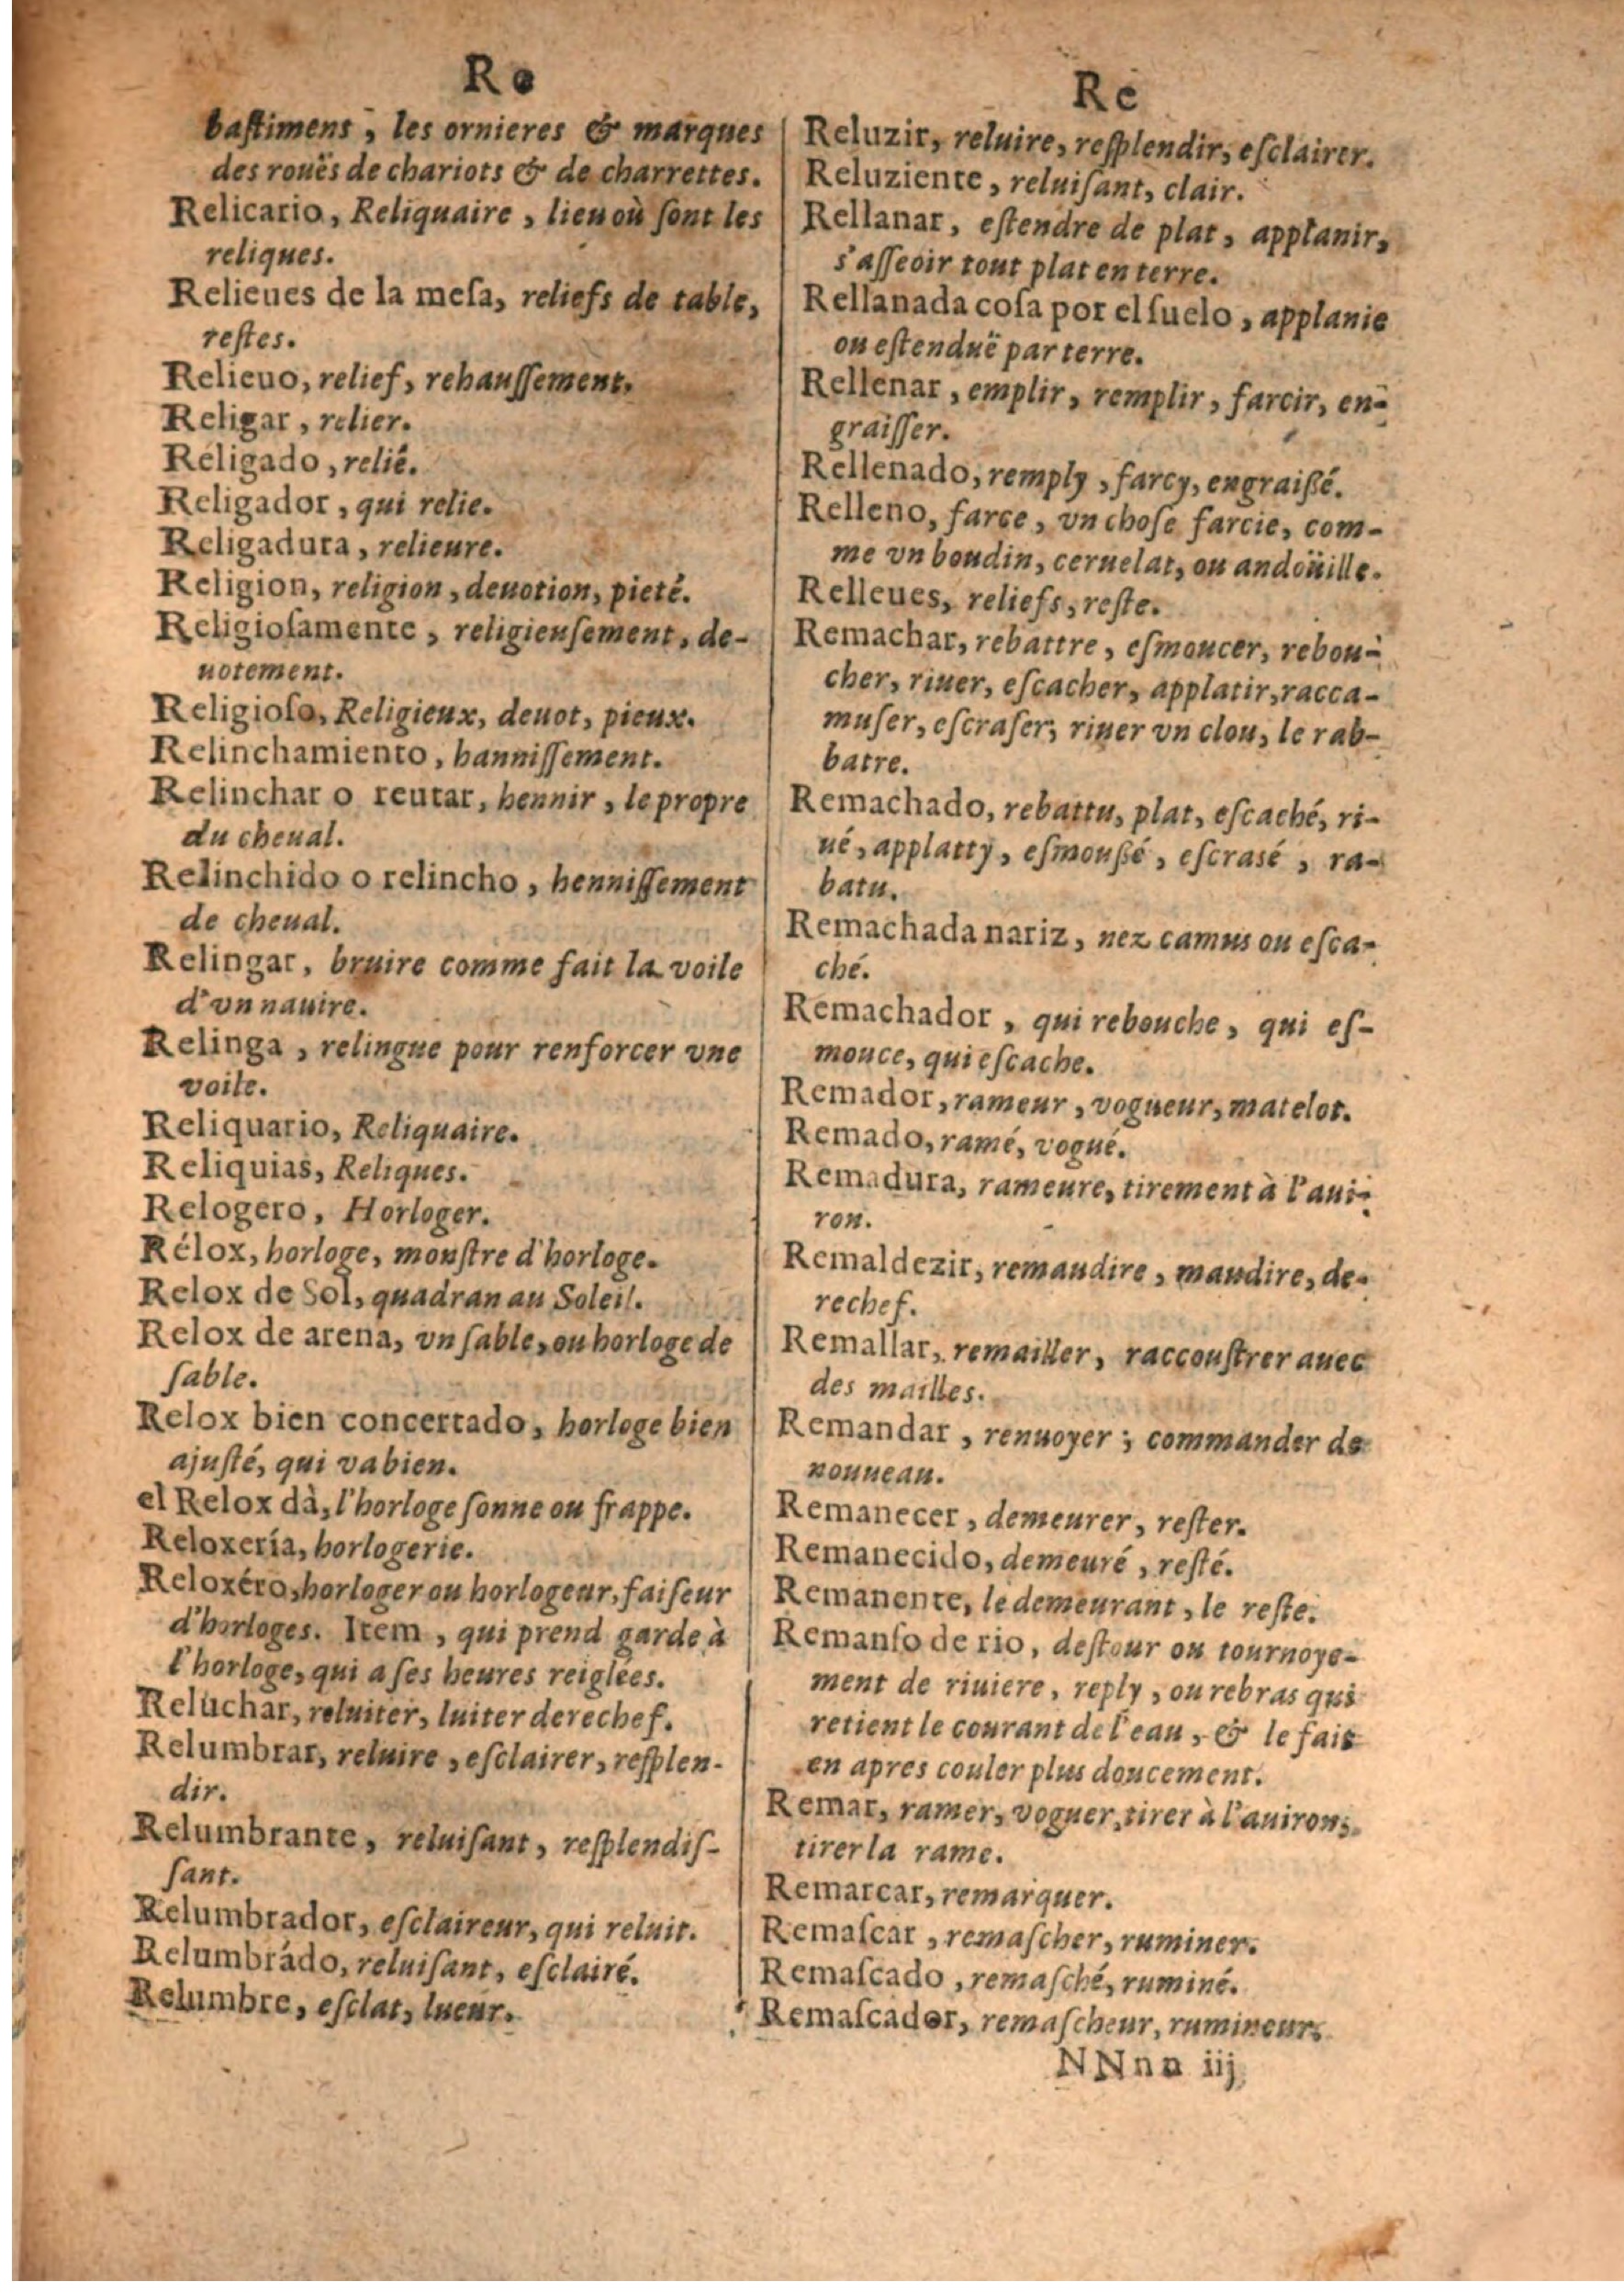 Re
bastiment, les ornieres & marques
des rouës de chariots & de charrettes.
Relicario, Reliquaire, lieu où ſont les
reliques.
Relieues de la meſa, reliefs de table,
reſtes.
Relieuo, relief, rehauſſement.
Religar, relier.
Religado, relié.
Religador, qui relie.
Religadura, relieure.
Religion, religion, deuotion, pieté.
Religioſamente, religieuſement, de-
uotement.
Religioſo, Religieux, deuot, pieux.
Relinchamiento, hanniſſement.
Relinchar o reutar, hennir, le propre
du cheual.
Relinchido o relincho, henniſſement
de cheual.
Relingar, bruire comme fait la voile
d'vn nauire.
Relinga, relingue pour renforcer vne
voile.
Reliquario, Reliquaire.
Reliquias, Reliques.
Relogero, Horloger.
Rélox, horloge, monſtre d'horloge.
Relox de Sol, quadran au Soleil.
Relox de arena, vn ſable, ou horloge de
ſable.
Relox bien concertado, horloge bien
ajuſté, qui va bien.
el Relox dà, l'horloge ſonne ou frappe.
Reloxería, horlogerie.
Reloxéro, horloger ou horlogeur, faiſeur
d'horloges. Item, qui prend garde à
l'horloge, qui a ſes heures reiglées.
Reluchar, reluiter, luiter derechef.
Relumbrar, reluire, eſclairer, reſplen-
dir.
Relumbrante, reluiſant, reſplendiſ-
ſant.
Relumbrador, eſclaireur, qui reluit.
Relumbrádo, reluiſant, eſclairé.
Relumbre, eſclat, lueur.
Re
Reluzir, reluire, reſplendir, eſclairer.
Reluziente, reluiſant, clair.
Rellanar, eſtendre de plat, applanir,
s'aſſeoir tout plat en terre.
Rellanada coſa por el ſuelo, applanie
ou eſtenduë par terre.
Rellenar, emplir, remplir, farcir, en-
graiſſer.
Rellenado, remply, farcy, engraißé.
Relleno, farce, vn choſe farcie, com-
me vn boudin, ceruelat, ou andoüille.
Relleues, reliefs, reſte.
Remachar, rebattre, eſmoucer, rebou-
cher, riuer, eſcacher, applatir, racca-
muſer, eſcraſer, riuer vn clou, le rab-
batre.
Remachado, rebattu, plat, eſcaché, ri-
ué, applatty, eſmoußé, eſcrasé, ra-
batu.
Remachada nariz, nez camus ou eſca-
ché.
Remachador, qui rebouche, qui eſ-
mouce, qui eſcache.
Remador, rameur, vogueur, matelot.
Remado, ramé, vogué.
Remadura, rameure, tirement à l'aui-
ron.
Remaldezir, remaudire, maudire, de-
rechef.
Remallar, remailler, raccouſtrer auec
des mailles.
Remandar, renuoyer; commander de
nouueau.
Remanecer, demeurer, reſter.
Remanecido, demeuré, reſté.
Remanente, le demeurant, le reſte.
Remanſo de rio, deſtour ou tournoye-
ment de riuiere, reply, ou rebras qui
retient le courant de l'eau, & le fait
en apres couler plus doucement.
Remar, ramer, voguer, tirer à l'auiron,
tirer la rame.
Remarcar, remarquer.
Remaſcar, remaſcher, ruminer.
Remaſcado, remaſché, ruminé.
Remaſcador, remaſcheur, rumineur.
NNnn iij